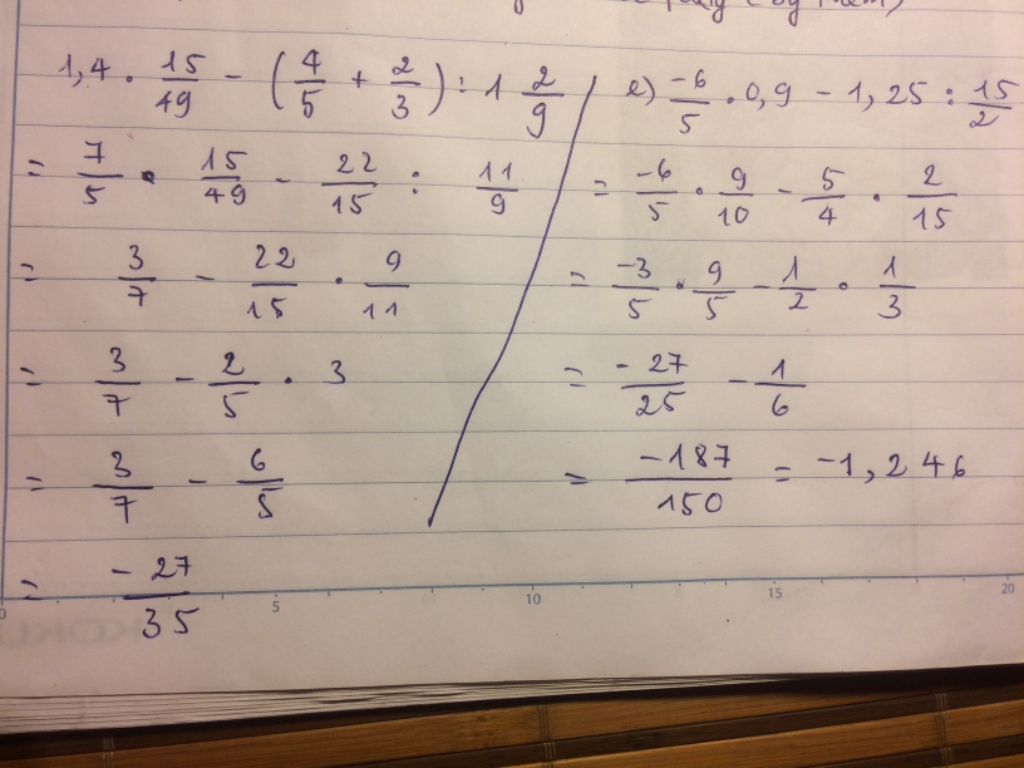 1,4 · 15/49 - (4/5 + 2/3) : 1 2/9
= 7/5 · 15/49 - 22/15 : 11/9
= 3/7 - 22/15 · 9/11
= 3/7 - 2/5 · 3
= 3/7 - 6/5
= -27/35
e) -6/5 · 0,9 - 1,25 : 15/2
= -6/5 · 9/10 - 5/4 · 2/15
= -3/5 · 9/5 - 1/2 · 1/3
= -27/25 - 1/6
= -187/150 = -1,246
0 5 10 15 20